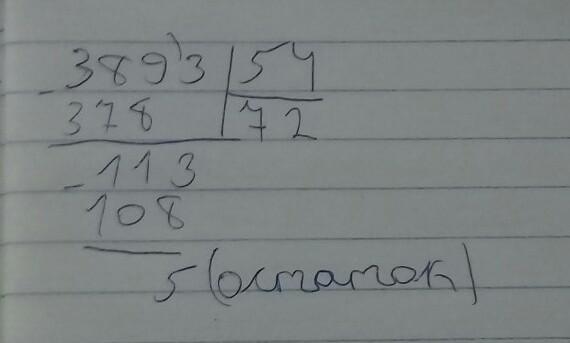 - 3893 54
378 72
- 113
108
5 (остаток)